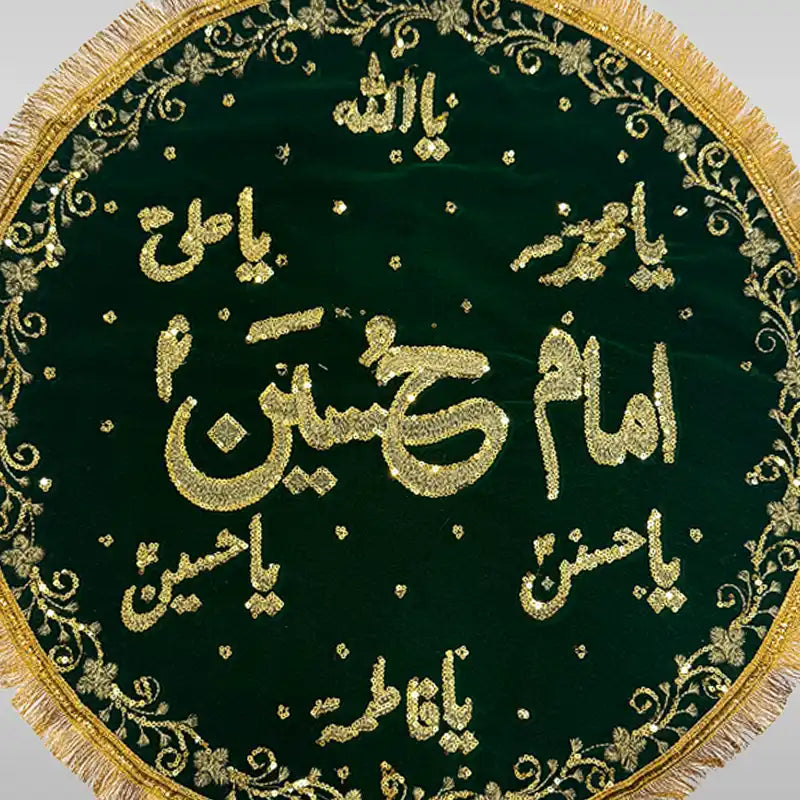 یا الله
یا محمد یا علی
امام حُسَین
یا حسن یا حسین
یا فاطمة